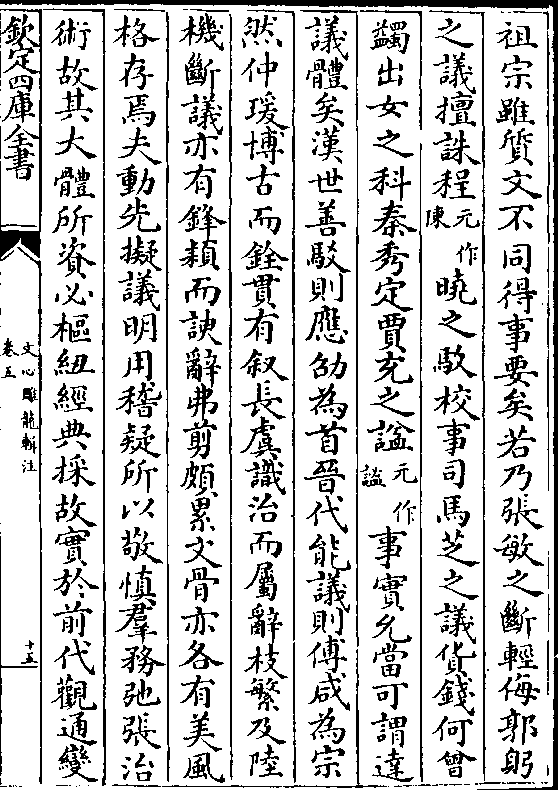 祖宗雖質文不同得事要矣若乃張敏之斷輕侮郭躬
之議擅誅程元作陳曉之駁校事司馬芝之議貨錢何曾
蠲出女之科秦秀定賈充之謚元作謚事實允當可謂達
議體矣漢世善駁則應劭為首晉代能議則傅咸為宗
然仲瑗博古而銓貫有叙長虞識治而屬辭枝繁及陸
機斷議亦有鋒穎而諛辭弗剪頗累文骨亦各有美風
格存焉夫動先擬議明用稽疑所以敬慎羣務弛張治
術故其大體所資必樞紐經典採故實於前代觀通變
欽定四庫全書
文心雕龍輯注
卷五
十五